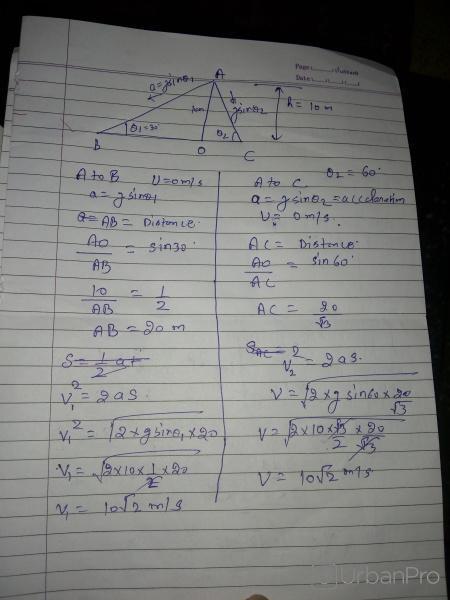 Page:
Date:
A
a = gsinθ₁
gsinθ₂
h = 10 m
θ₁ = 30
θ₂
B
O
C
A to B U = 0 m/s
a = gsinθ₁
AB = Distance.
AO/AB = sin30°
10/AB = 1/2
AB = 20 m
S = 1/2 at
V₁² = 2as
V₁² = √2×gsinθ₁×20
V₁ = √2×10×1/2×20
V₁ = 10√2 m/s
θ₂ = 60°
A to C.
a = gsinθ₂ = acceleration
U = 0 m/s.
AC = Distance.
AO/AC = sin60°
AC = 20/√3
V₂² = 2as.
V = √2×g sin60×20/√3
V = √2×10×√3/2×20/√3
V = 10√2 m/s
UrbanPro